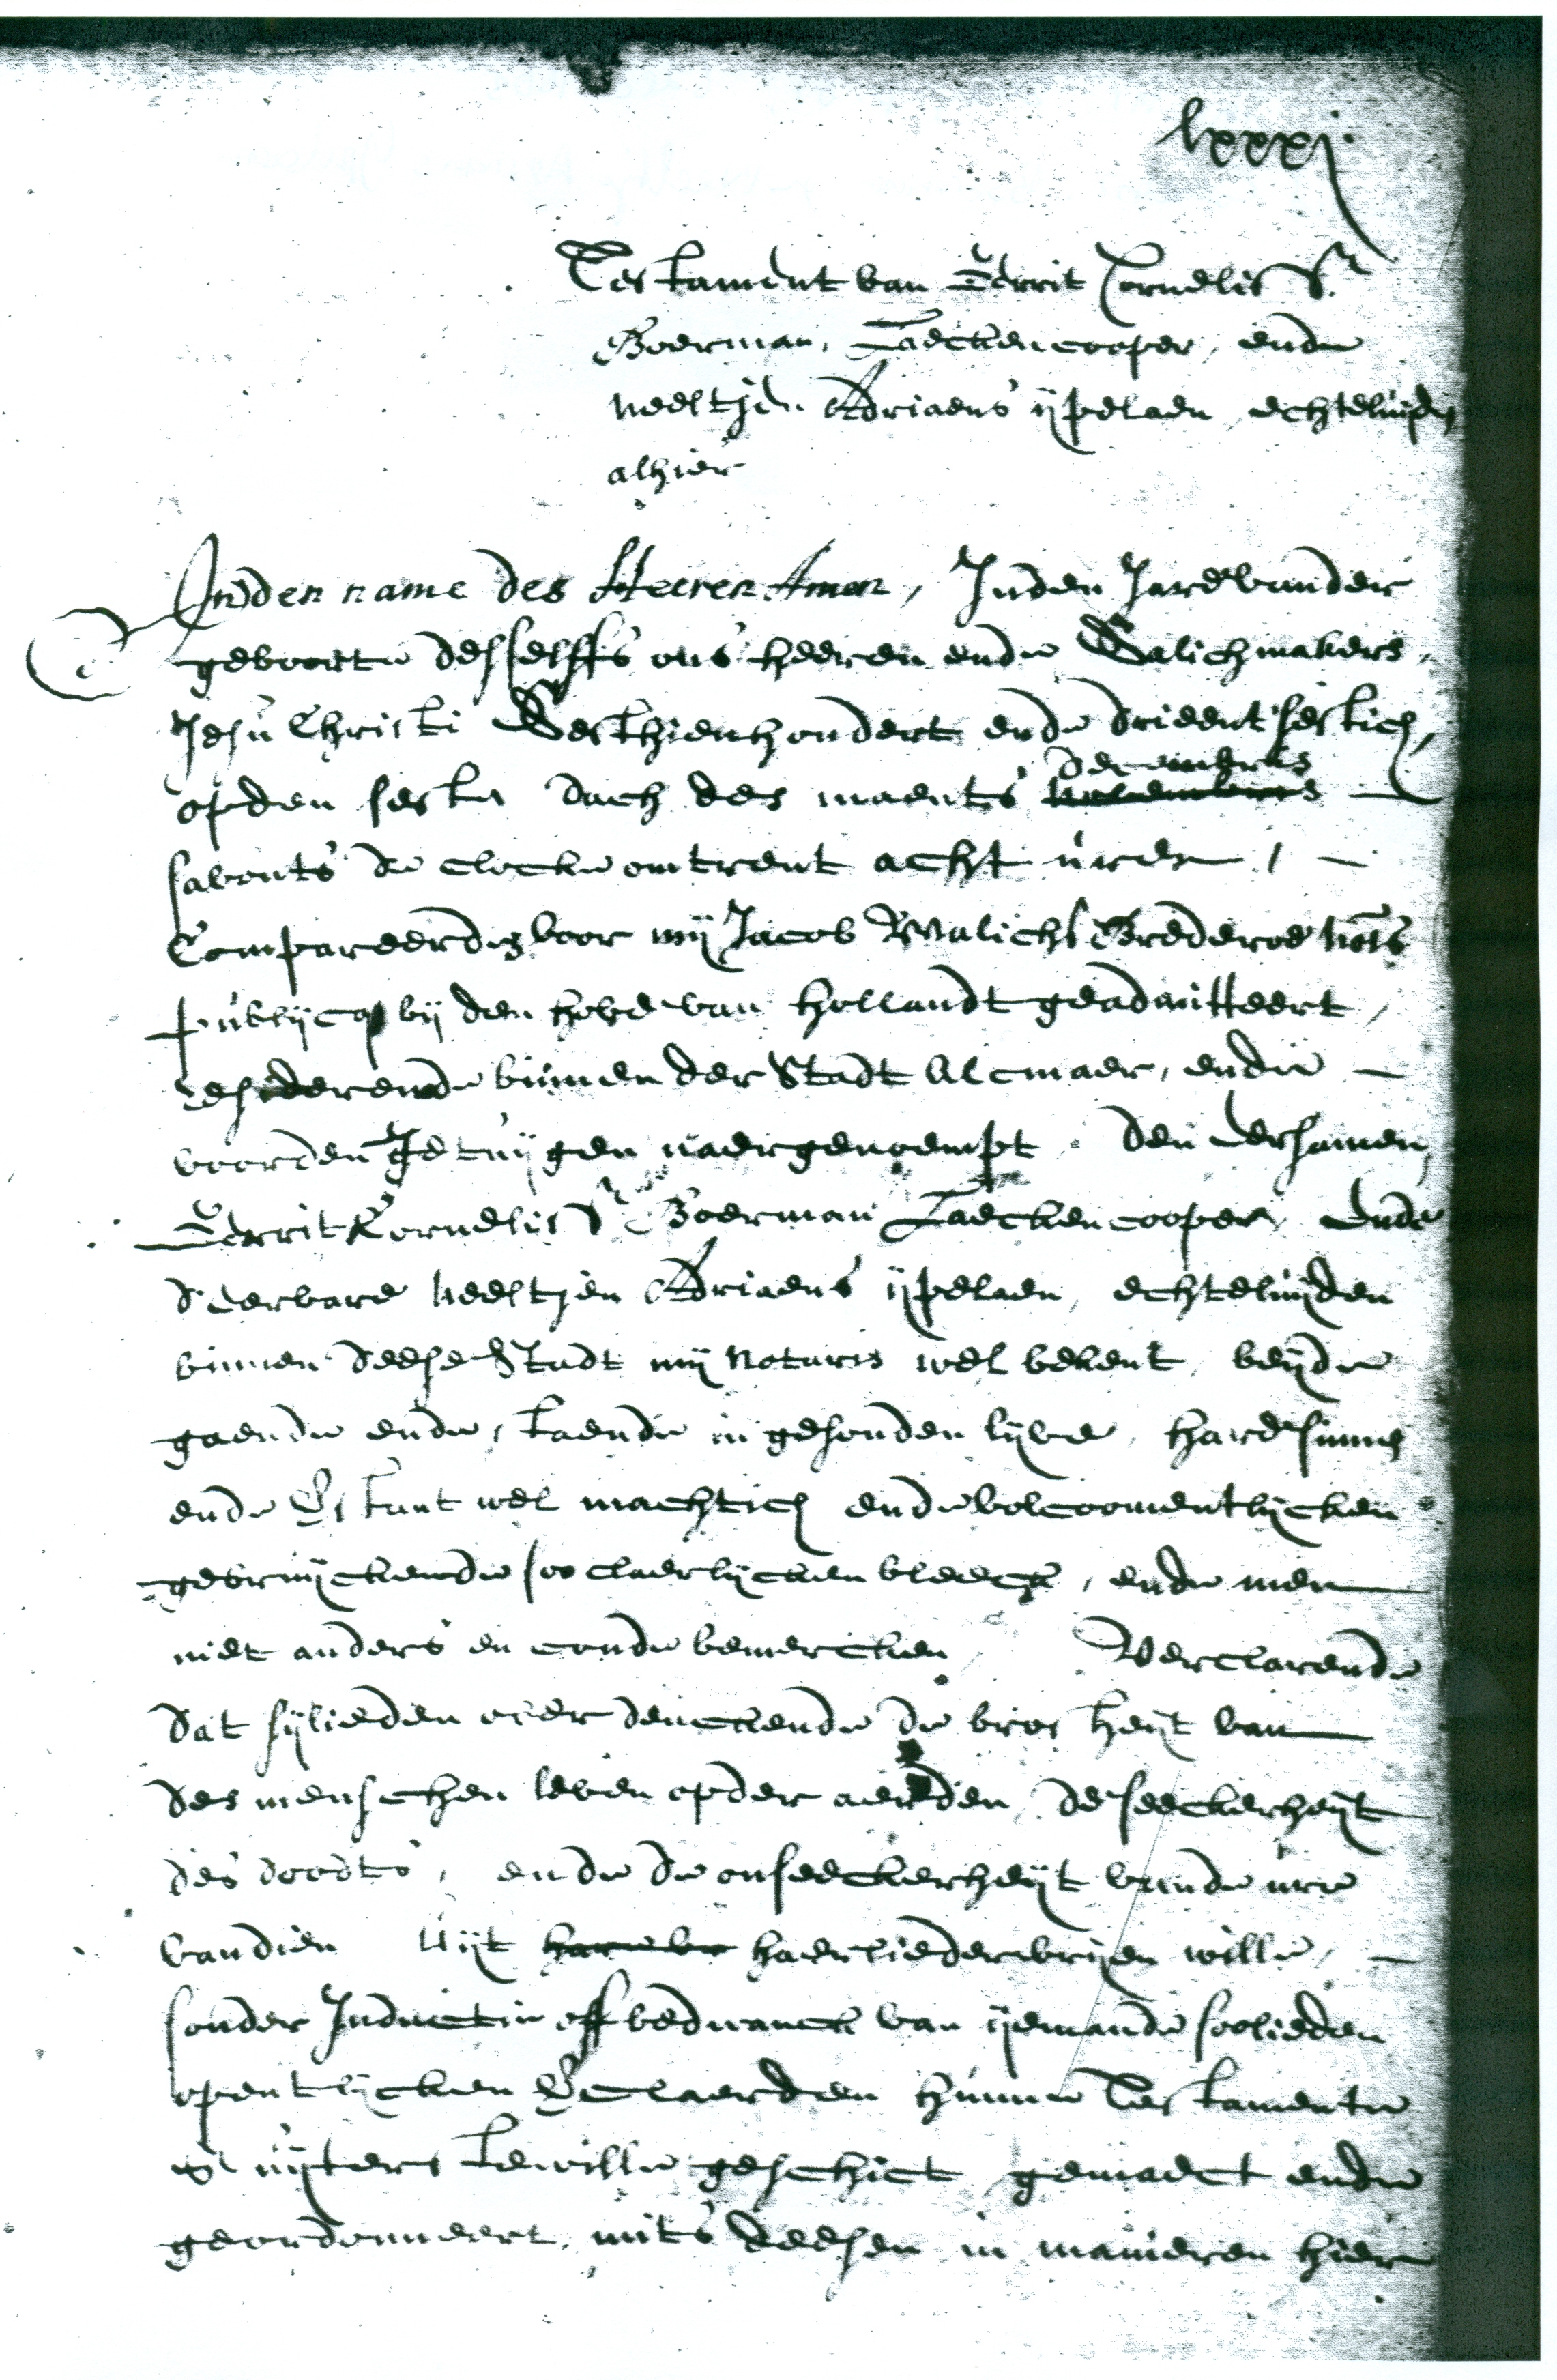 lxxxj
Testament van Gerrit Cornelis Sr
Boerman, Laeckencooper, ende
Neeltjen Adriaens ijpelaen, echteluijden
alhier
Inden name des Heeren Amen, Inden Jare vander
geboorte desselffs ons heeren ende Salichmakers
Jesu Christi Sesthienhondert ende drientsestich,
opden sesten dach des maents novembris decembris
savonts de clocke omtrent acht uren,
Compareerden voor mij Jacob Walichs Brederoe nots
publijcq bij den hove van Hollandt geadmitteert,
residerende binnen der Stadt Alcmaer, ende
voorden getuijgen naergenoempt, den Eersamen
Gerrit Cornelis Sr Boerman Laeckencooper, ende
d'eerbare Neeltjen Adriaens ijpelaen, echteluijden
binnen deese Stadt mij Notaris wel bekent, beijde
gaende ende staende in gesonden lijve, hare sinnen
ende verstant wel machtich ende volcoomentlijcken
gebruijckende soo claerlijcken bleeck, ende men
niet anders en conde bemercken, Verclarende
dat sijlieden overdenckende de broosheijt van
des menschen leven op der aerden, de seeckerheijt
des doodts, ende de onseeckerheijt vande ure
vandien uijt haerlieder vrijen wille,
sonder Inductie off bedwanck van ijemande soo lieden
opentlijcken verclaerden hunne Testamente
uijterste wille geschict gemaect ende
geordonneert, mits deesen in manieren hier